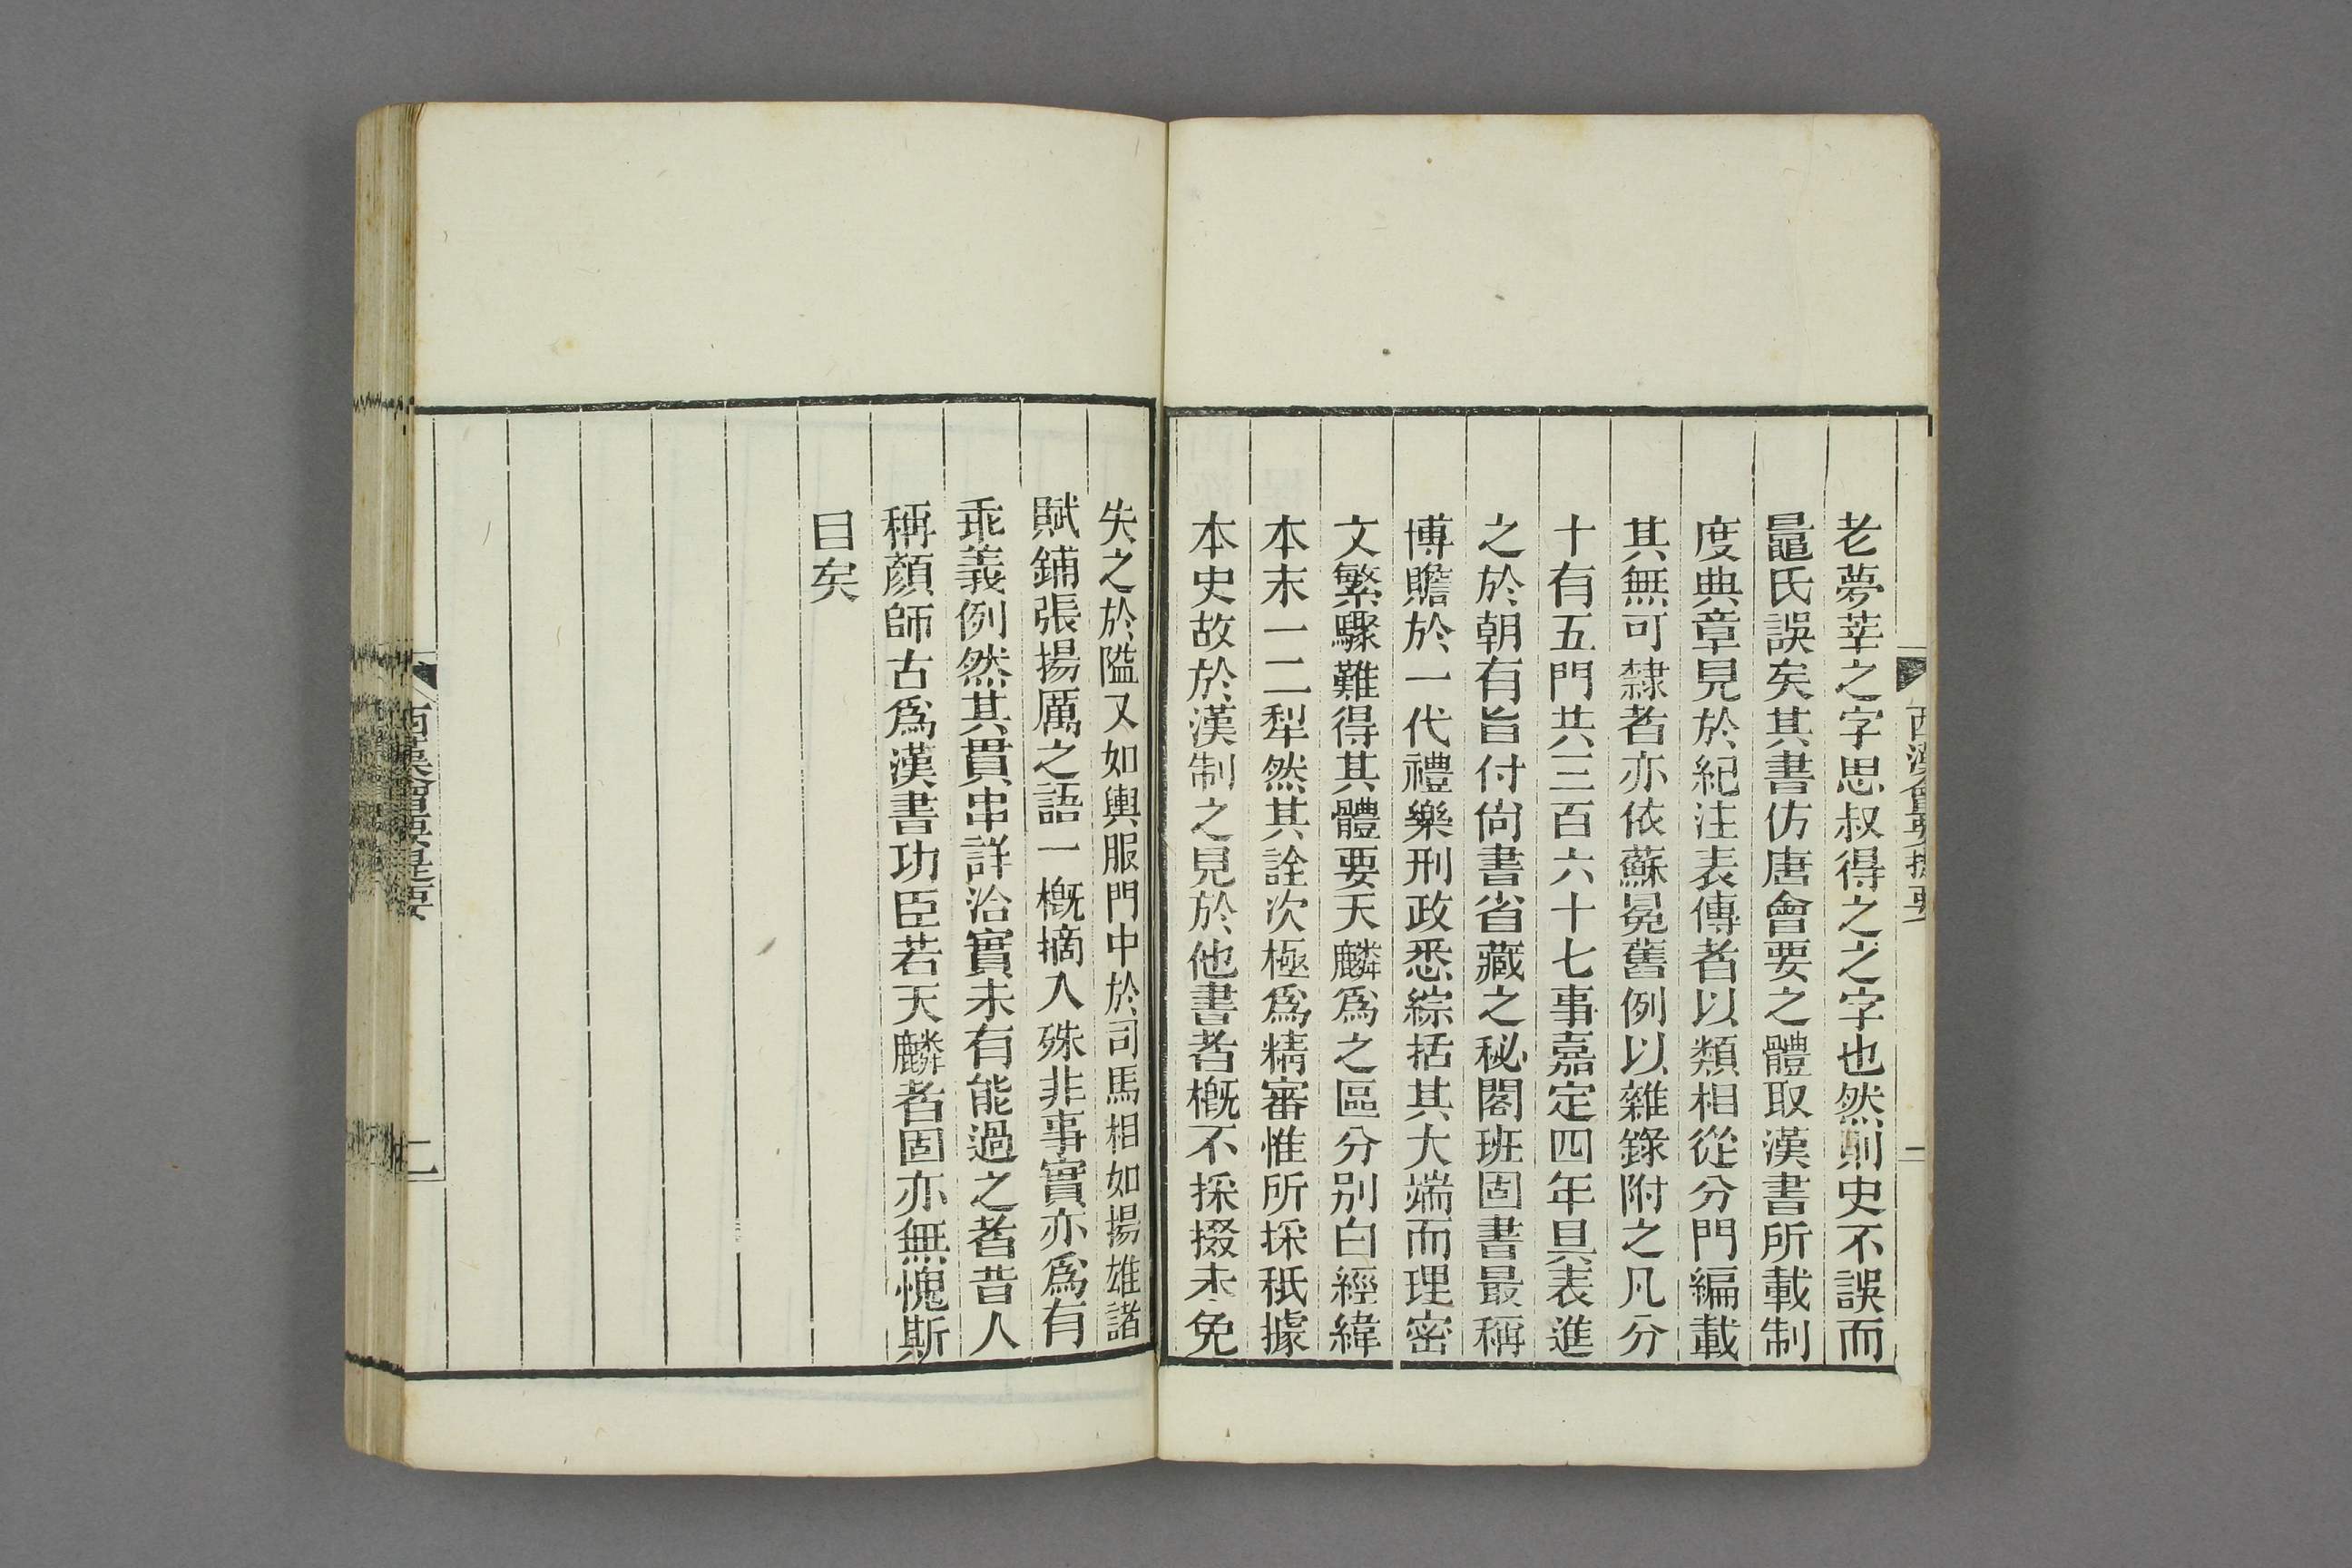 老夢莘之字思叔得之之字也然則史不誤而
鼂氏誤矣其書仿唐會要之體取漢書所載制
度典章見於紀注表傳者以類相從分門編載
其無可隸者亦依蘇冕舊例以雜錄附之凡分
十有五門共三百六十七事嘉定四年具表進
之於朝有旨付尙書省藏之秘閣班固書最稱
博贍於一代禮樂刑政悉綜括其大端而理密
文繁驟難得其體要天麟爲之區分别白經緯
本末一一犁然其詮次極爲精審惟所採秖據
本史故於漢制之見於他書者槪不採掇未免
失之於隘又如輿服門中於司馬相如揚雄諸
賦鋪張揚厲之語一槪摘入殊非事實亦爲有
乖義例然其貫串詳洽實未有能過之者昔人
稱顏師古爲漢書功臣若天麟者固亦無愧斯
目矣
西漢會要提要
二
西漢會要提要
二